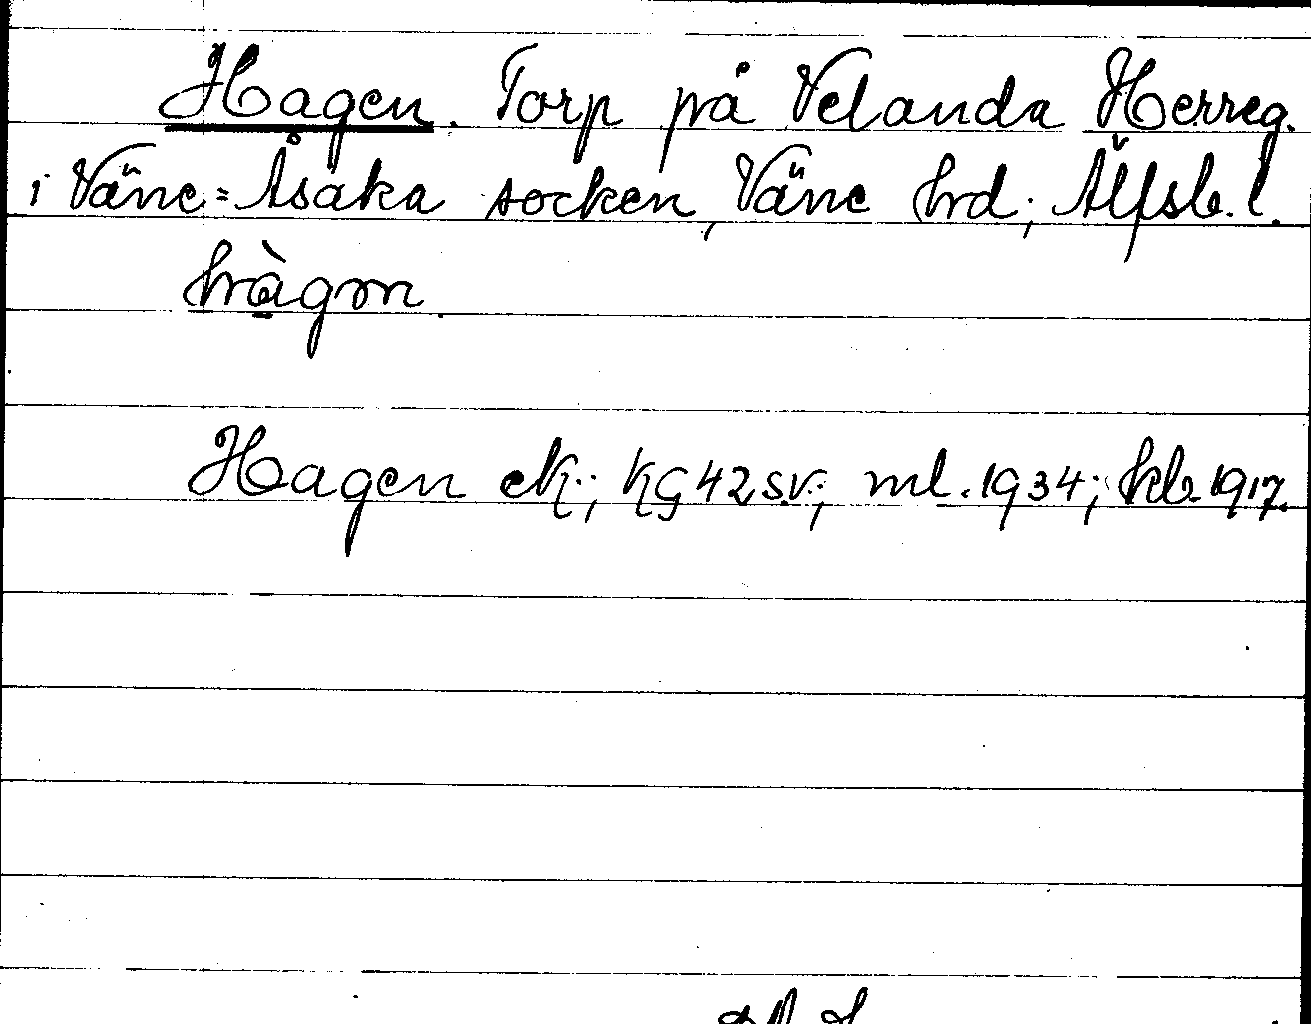 Hagen. Torp på Velanda Herreg.
i Väne=Åsaka socken, Väne hrd; Älfsb. l.
hàgɷn.
Hagen ek.; KG 42 sv.; ml. 1934; kb. 1917.